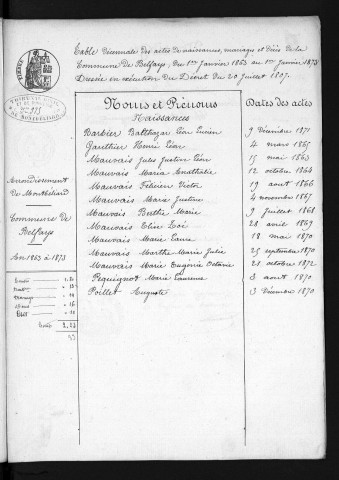 Table décennale des actes de naissances, mariages et décès de la
Commune de Belfays, du 1er Janvier 1863 au 1er Janvier 1873
Dressée en exécution du Décret du 20 Juillet 1807.
TIMBRE
Noms et Prénoms
Dates des actes
Naissances
Barbier Balthazar Léon
9 Décembre 1871
Gauthier Henri Léon
4 mars 1865
Mauvais Jules Justin Léon
15 mai 1863
Mauvais Maria Enathalie
12 octobre 1864
Mauvais Félicien Victor
19 août 1866
Mauvais Marie Justine
4 novembre 1867
Mauvais Berthe Marie
9 juillet 1868
Mauvais Elise Zoé
28 avril 1869
Mauvais Marie Laure
18 mai 1870
Mauvais Marthe Marie Julie
25 septembre 1870
Mauvais Marie Eugénie Octavie
21 octobre 1872
Pequignot Marie Laurence
8 août 1870
Poillet Auguste
3 Décembre 1870
Arrondissement
de Montbéliard
Commune de
Belfays
An 1863 à 1873